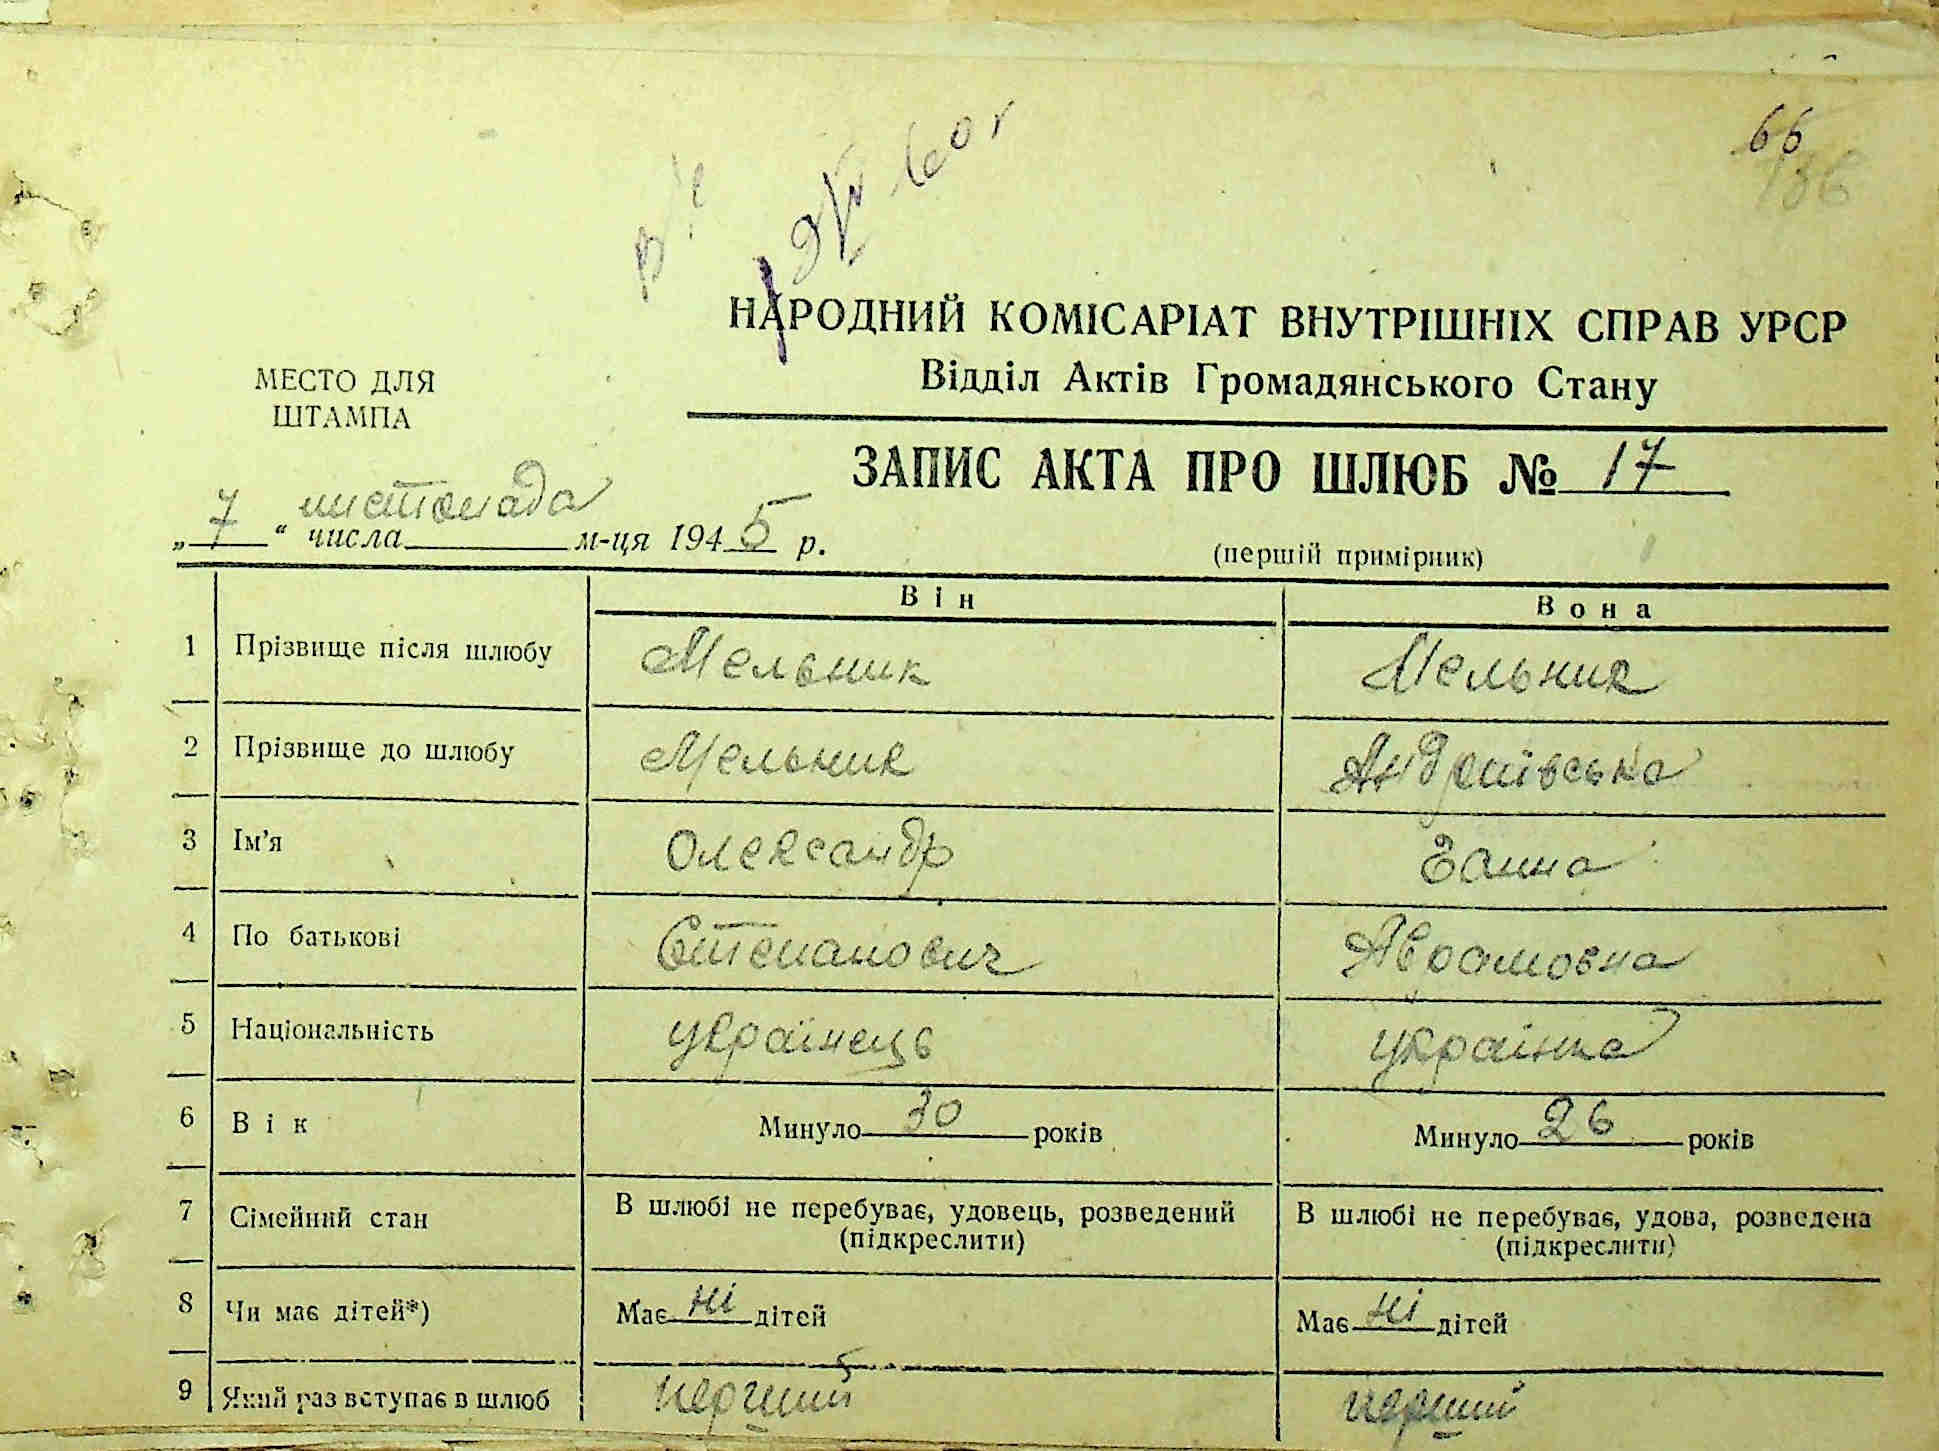 66
136
НАРОДНИЙ КОМІСАРІАТ ВНУТРІШНІХ СПРАВ УРСР
Відділ Актів Громадянського Стану
МЕСТО ДЛЯ
ШТАМПА
ЗАПИС АКТА ПРО ШЛЮБ № 17
„7“ числа листопада м-ця 1945 р.
(першій примірник)
Він Вона
1 Прізвище після шлюбу Мельник Мельник
2 Прізвище до шлюбу Мельник Андріївська
3 Ім'я Олександр Ганна
4 По батькові Степанович Аврамовна
5 Національність українець українка
6 Вік Минуло 30 років Минуло 26 років
7 Сімейний стан В шлюбі не перебуває, удовець, розведений В шлюбі не перебуває, удова, розведена
(підкреслити) (підкреслити)
8 Чи має дітей*) Має ні дітей Має ні дітей
9 Який раз вступає в шлюб перший перший